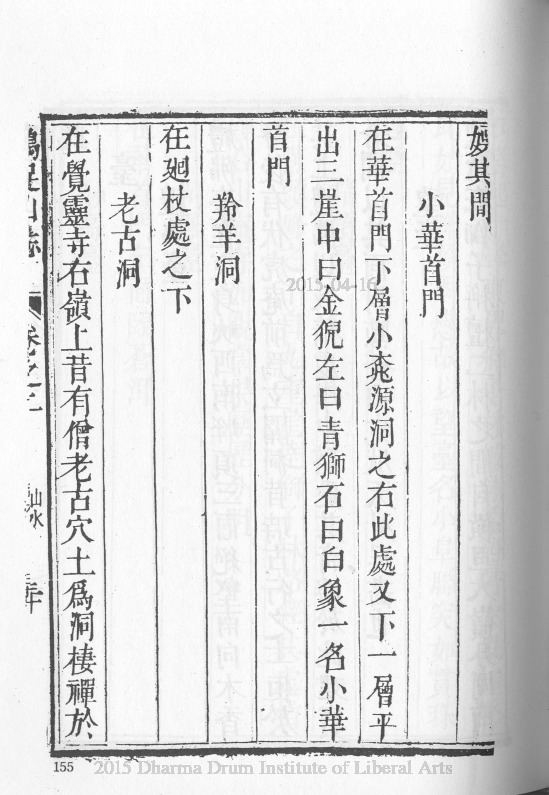 娛其間
小華首門
在華首門下層小桃源洞之右此處又下一層平
出三崖中曰金猊左曰青獅石曰白象一名小華
首門
羚羊洞
在廻杖處之下
老古洞
在覺靈寺右嶺上昔有僧老古穴土爲洞棲禪於
山志
卷之二
山水
2015-04-16
155
2015 Dharma Drum Institute of Liberal Arts